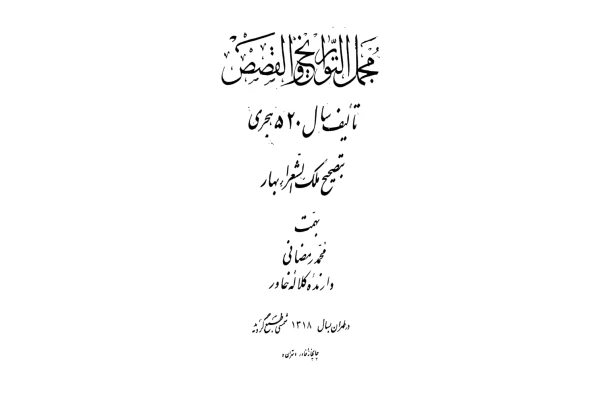 مجمل التواریخ والقصص
تألیف سال ۵۲۰ هجری
بتصحیح ملک الشعراء بهار
بهمت
محمد رمضانی
دارنده کلاله خاور
در طهران بسال ۱۳۱۸ شمسی طبع گردید
چاپخانه خاور «تهران»